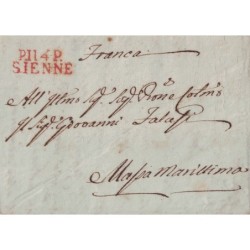 P.114.P.
SIENNE
Franca
All' Illmo Sig. Sig. Prone Colmo
Il Sig. Giovanni
Massa Marittima